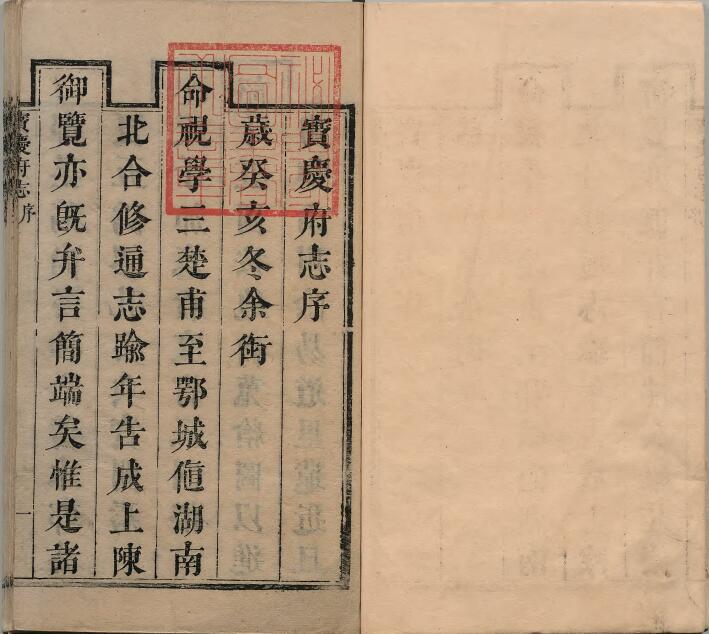 寳慶府志序
歳癸亥冬余銜
命視學三楚甫至鄂城値湖南
北合修通志踰年告成上陳
御覽亦旣弁言簡端矣惟是諸
寳慶府志序
一